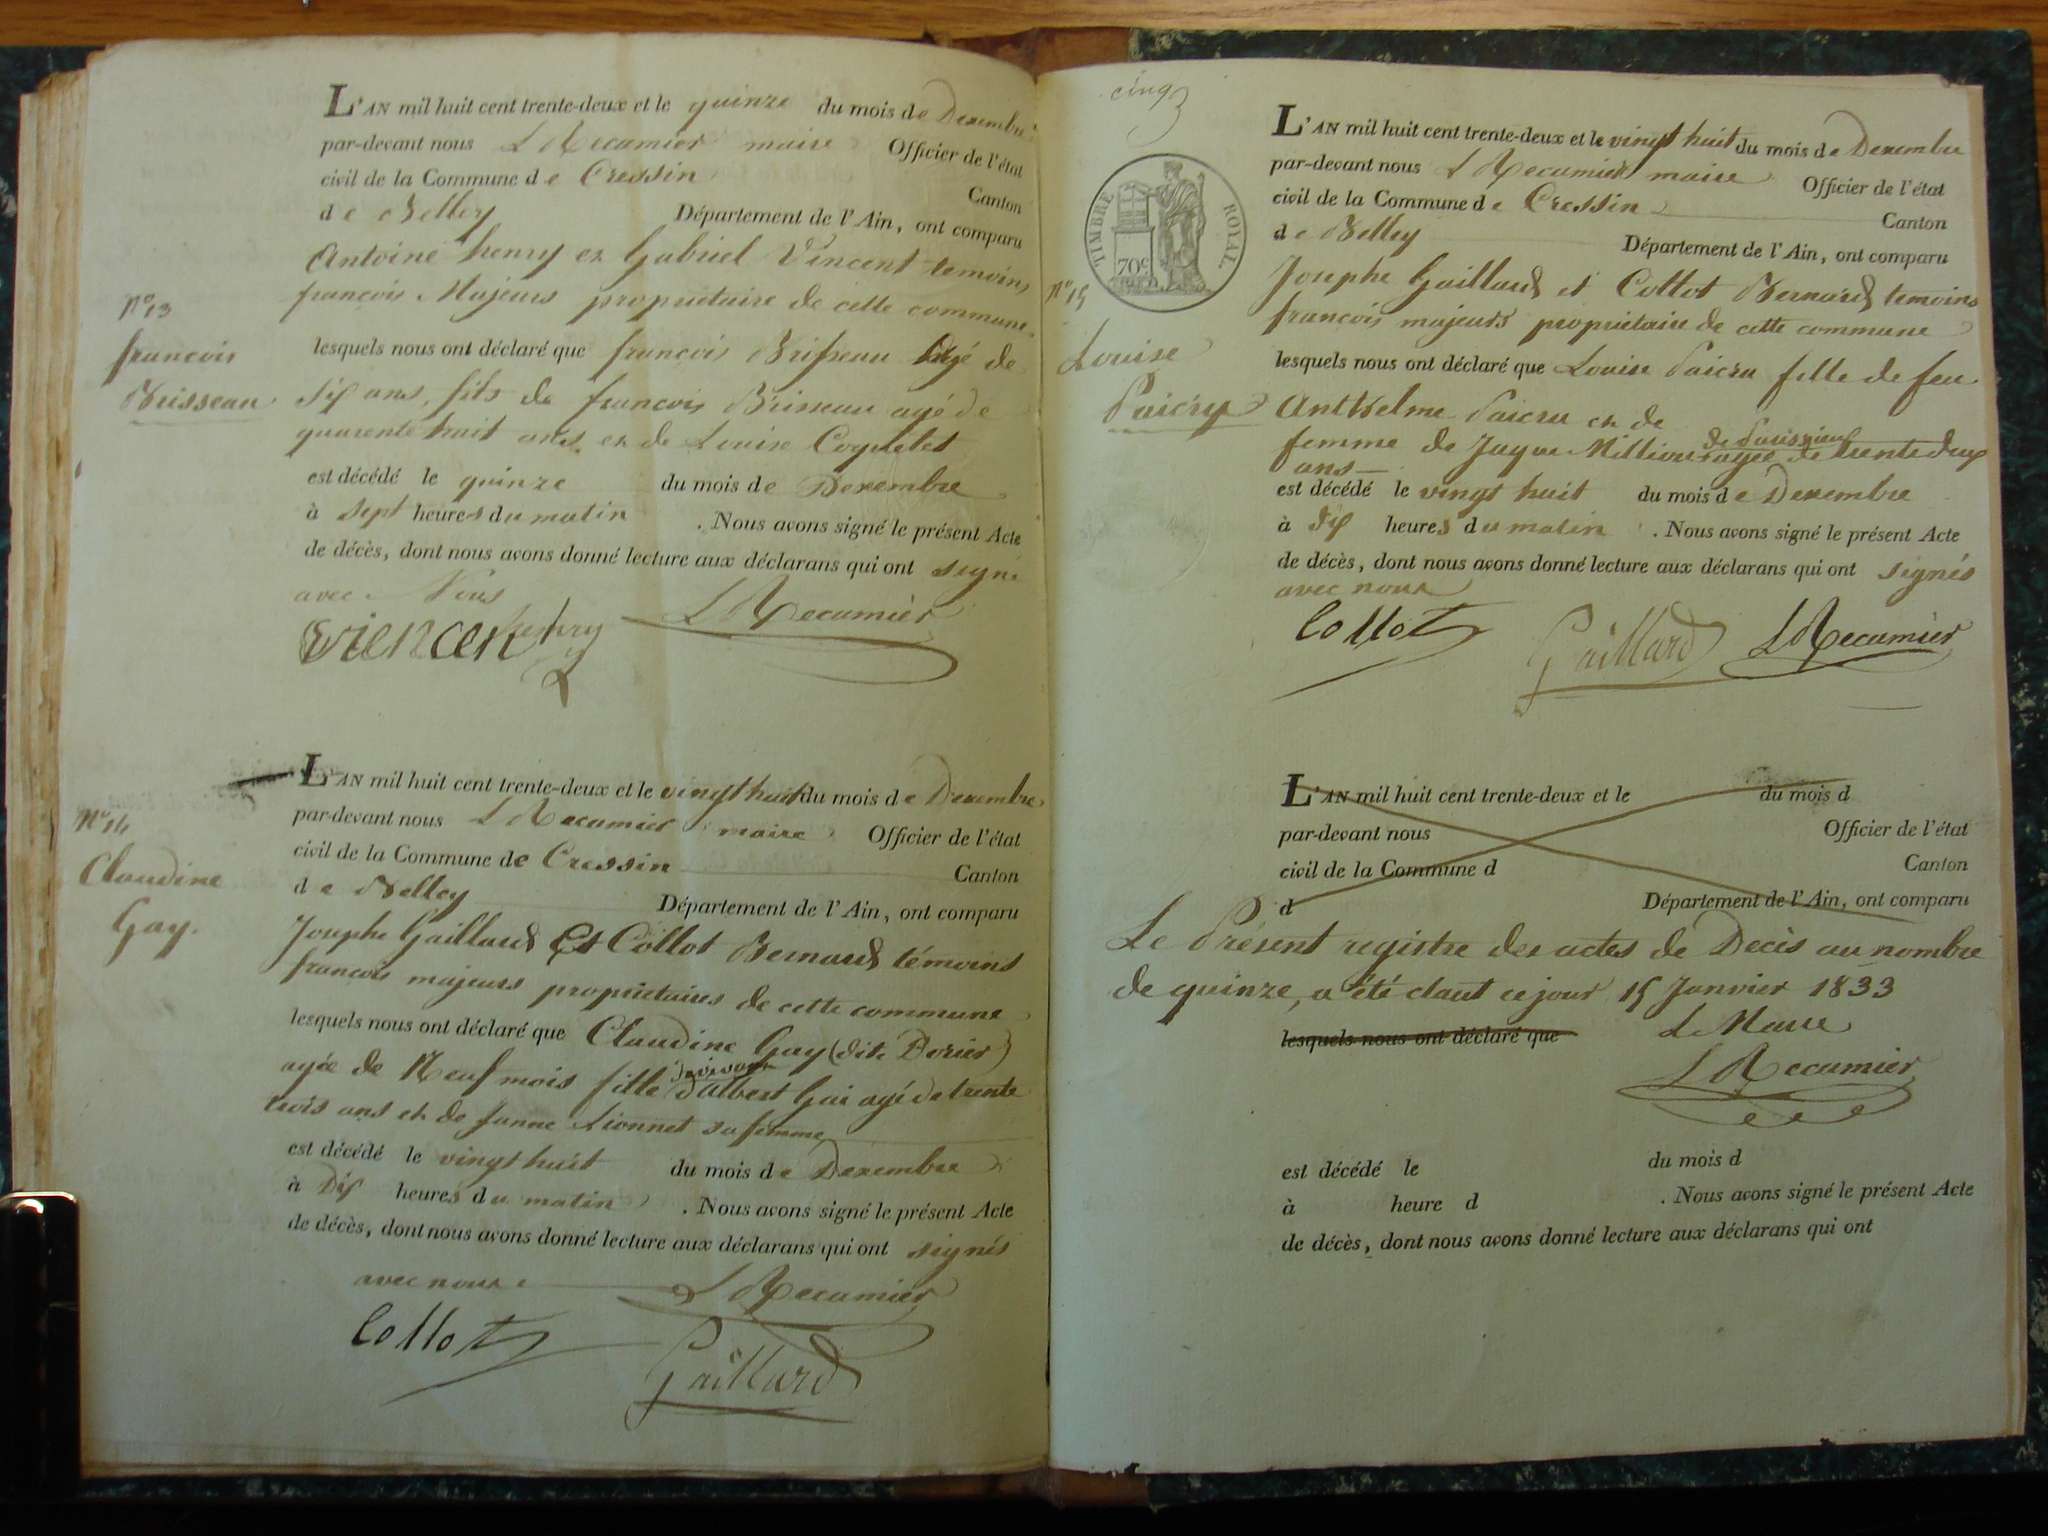 L'AN mil huit cent trente-deux et le quinze du mois de Dexembre
par-devant nous L Recamier maire Officier de l'état
civil de la Commune de Cressin Canton
de Belley Département de l'Ain, ont comparu
Antoine henry et Gabriel Vincent temoins
francois Majeurs propriétaire de cette commune
N° 13
francois
Brisseau
lesquels nous ont déclaré que francois Brisseau agé de
dix ans, fils de francois Brisseau agé de
quarente huit ans et de Louise Coquelet
est décédé le quinze du mois de Dexembre
à sept heures du matin . Nous avons signé le présent Acte
de décès, dont nous avons donné lecture aux déclarans qui ont signé
avec Nous
viencent henry L Recamier
L'AN mil huit cent trente-deux et le vingt huit du mois de Dexembre
par-devant nous L Recamier maire Officier de l'état
civil de la Commune de Cressin Canton
de Belley Département de l'Ain, ont comparu
N° 14
Claudine
Gay.
Josephe Gaillard Et Collot Bernard témoins
francois majeurs propriétaires de cette commune
lesquels nous ont déclaré que Claudine Gay (dite Dorier)
agée de Neuf mois fille d'albert Gai agé de trente
trois ans et de Janne Lionnet sa femme
est décédé le vingt huit du mois de Dexembre
à Dix heures du matin . Nous avons signé le présent Acte
de décès, dont nous avons donné lecture aux déclarans qui ont signés
avec nous L Recamier
Collot Gaillard
cinq
TIMBRE ROYAL
70c
L'AN mil huit cent trente-deux et le vingt huit du mois de Dexembre
par-devant nous L Recamier maire Officier de l'état
civil de la Commune de Cressin Canton
de Belley Département de l'Ain, ont comparu
N° 15
Louise
Paicru
Josephe Gaillard et Collot Bernard temoins
francois majeurs propriétaire de cette commune
lesquels nous ont déclaré que Louise Paicru fille de feu
Anthelme Paicru et de
femme de Jaque agée de trente deux
ans
est décédé le vingt huit du mois de Dexembre
à dix heures du matin . Nous avons signé le présent Acte
de décès, dont nous avons donné lecture aux déclarans qui ont signés
avec nous
Collot Gaillard L Recamier
L'AN mil huit cent trente-deux et le du mois d
par-devant nous Officier de l'état
civil de la Commune d Canton
d Département de l'Ain, ont comparu
Le Présent registre des actes de Decès au nombre
de quinze, a été claut ce jour 15 Janvier 1833
lesquels nous ont déclaré que Le Maire
L Recamier
est décédé le du mois d
à heure d . Nous avons signé le présent Acte
de décès, dont nous avons donné lecture aux déclarans qui ont